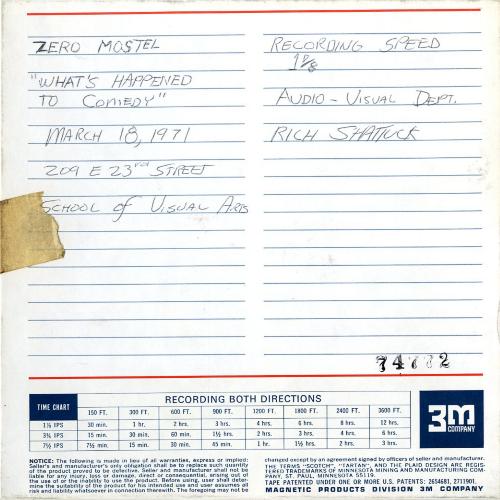 ZERO MOSTEL
"WHAT'S HAPPENED
TO COMEDY"
MARCH 18, 1971
209 E 23rd STREET
SCHOOL of VISUAL ARTS
RECORDING SPEED
1 7/8
AUDIO-VISUAL DEPT.
RICH SHATTUCK
74772
RECORDING BOTH DIRECTIONS
TIME CHART 150 FT. 300 FT. 600 FT. 900 FT. 1200 FT. 1800 FT. 2400 FT. 3600 FT.
1⅞ IPS 30 min. 1 hr. 2 hrs. 3 hrs. 4 hrs. 6 hrs. 8 hrs. 12 hrs.
3¾ IPS 15 min. 30 min. 60 min. 1½ hrs. 2 hrs. 3 hrs. 4 hrs. 6 hrs.
7½ IPS 7½ min. 15 min. 30 min. 45 min. 1 hr. 1½ hrs. 2 hrs. 3 hrs.
3M
COMPANY
NOTICE: The following is made in lieu of all warranties, express or implied:
Seller's and manufacturer's only obligation shall be to replace such quantity
of the product proved to be defective. Seller and manufacturer shall not be
liable for any injury, loss or damage, direct or consequential, arising out of
the use of or the inability to use the product. Before using, user shall deter-
mine the suitability of the product for his intended use and user assumes all
risk and liability whatsoever in connection therewith. The foregoing may not be
changed except by an agreement signed by officers of seller and manufacturer.
THE TERMS "SCOTCH", "TARTAN", AND THE PLAID DESIGN ARE REGIS-
TERED TRADEMARKS OF MINNESOTA MINING AND MANUFACTURING COM-
PANY, ST. PAUL, MINNESOTA 55119.
TAPE PATENTED UNDER ONE OR MORE U.S. PATENTS: 2654681, 2711901.
MAGNETIC PRODUCTS DIVISION 3M COMPANY